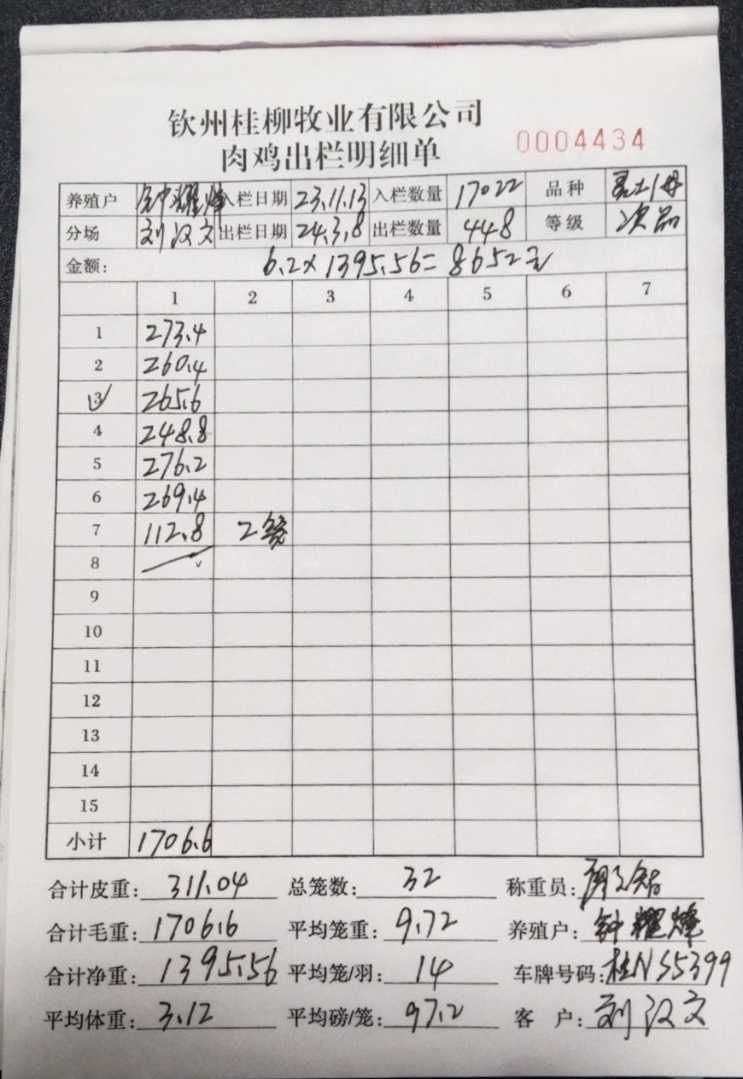 钦州桂柳牧业有限公司
0004434
肉鸡出栏明细单
养殖户 钟耀烽 入栏日期 23.11.13 入栏数量 17022 品种
分场 刘汉文 出栏日期 24.3.8 出栏数量 448 等级 次品
金额: 6.2×1395.56=8652元
1 2 3 4 5 6 7
1 273.4
2 260.4
3 265.6
4 248.8
5 276.2
6 269.4
7 112.8 2笼
8
9
10
11
12
13
14
15
小计 1706.6
合计皮重: 311.04 总笼数: 32 称重员:
合计毛重: 1706.6 平均笼重: 9.72 养殖户: 钟耀烽
合计净重: 1395.56 平均笼/羽: 14 车牌号码: 桂NS5399
平均体重: 3.12 平均磅/笼: 97.2 客 户: 刘汉文